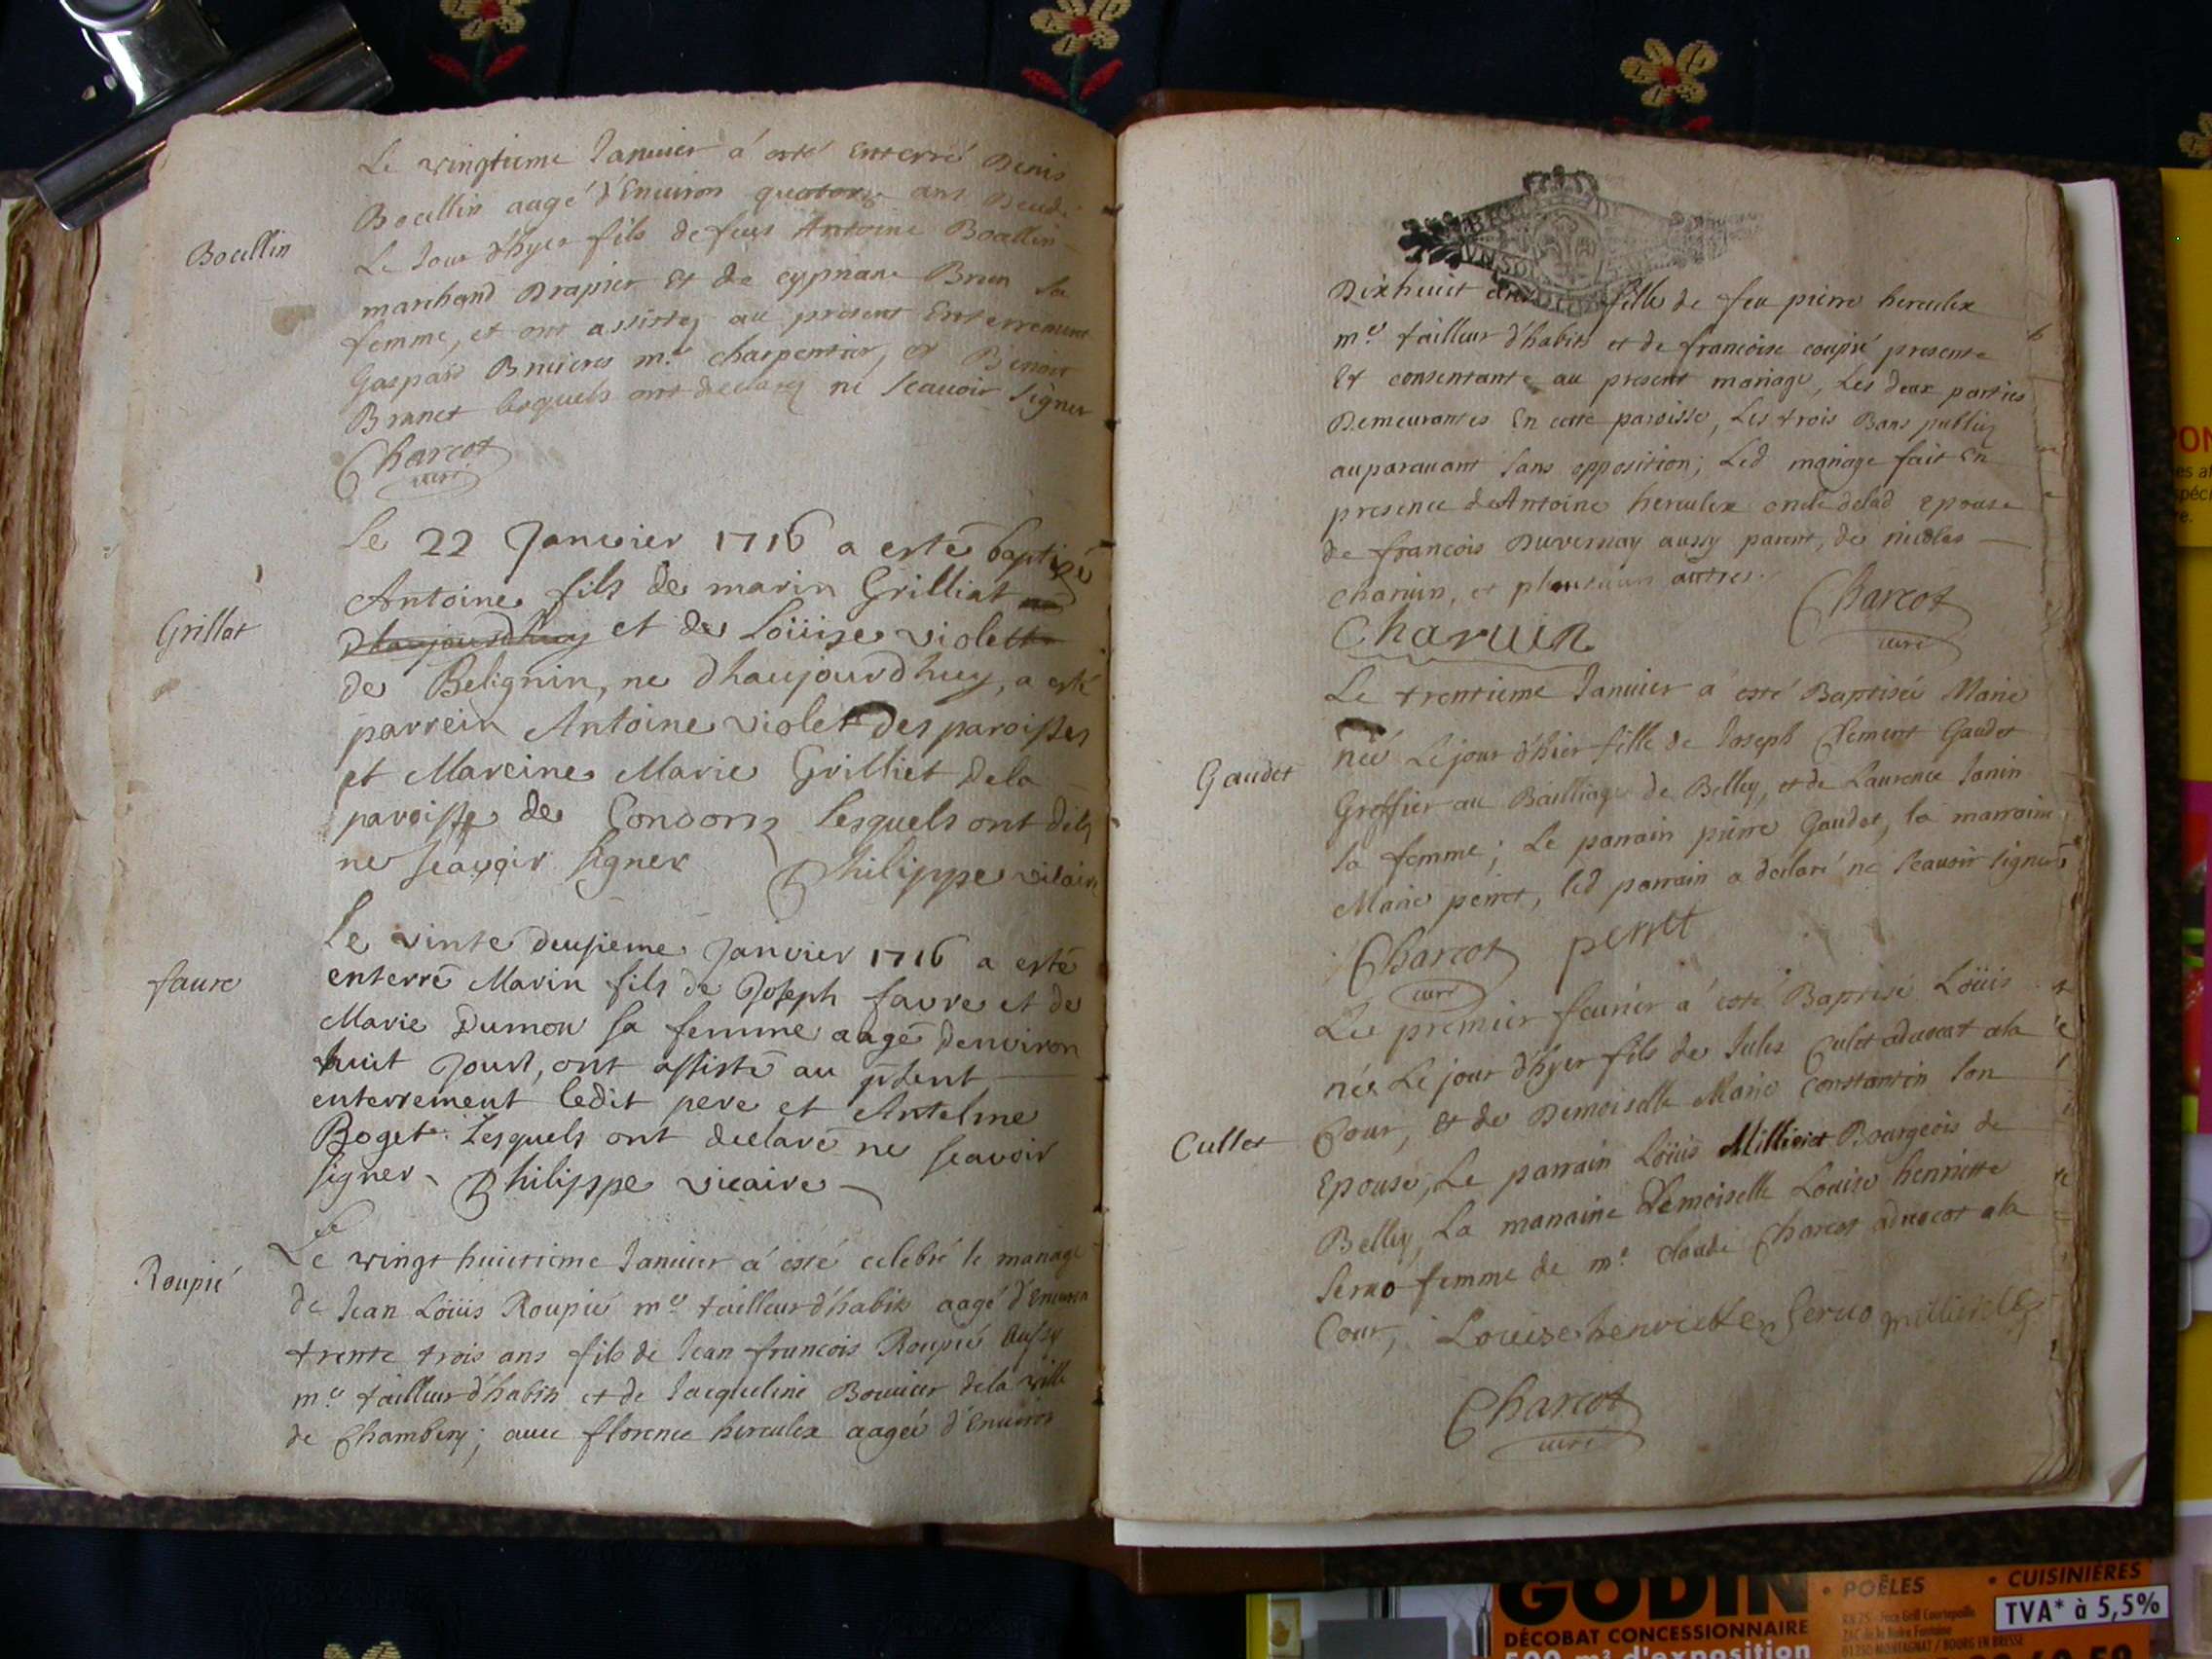 Le vingtieme Janvier a esté Enterré Denis
Bocellin aagé d'Environ quatorze ans Decedé
Le Jour d'hyer fils de feus Antoine Bocellin
Bocellin
marchand Drapier et de cypriane Brun sa
femme, et ont assistez au present Enterrement
Gaspard Bruieres m.e charpentier, et Benoit
Brunet lesquels ont declaré ne Scauoir Signer
Charcot
curé
Le 22 Janvier 1716 a esté baptisé
Antoine fils de marin Grilliat
Grillat
dhaujourdhuy et de Loüise violette
de Belignin, ne dhaujourdhuy, a esté
parrein Antoine violet des paroisses
et Mareine Marie Grilliet dela
paroisse de Condon lesquels ont dit
ne sçavoir signer Philippe vicaire
Le vinte deusieme Janvier 1716 a esté
faure
enterré Marin fils de Joseph favre et de
Marie Dumon sa femme aagé denviron
huit Jours, ont assisté au pñsent
enterrement ledit pere et Antelme
Boget. Lesquels ont declaré ne scavoir
signer Philippe vicaire
Le
Le vingt huictieme Janvier a esté celebré le mariage
Roupié
de Jean Loüis Roupié m.e tailleur d'habits aagé d'Environ
trente trois ans fils de Jean francois Roupié Aussy
m.e tailleur d'habits et de Jacqueline Bouvier dela ville
de Chambery; avec florence herculex aagée d'Environ
VN SOL
Dixhuict ans fille de feu pierre herculex
m.e tailleur d'habits et de francoise coupié presente
Et consentante au present mariage, Les deux parties
Demeurantes En cette paroisse, Les trois Bans publiez
auparauant Sans opposition; Led mariage fait En
presence de Antoine herculex oncle delad Epouse
de francois Duvernay aussy parent, de nicolas
Charuin, et plusieurs autres.
Charuin
Charcot
curé
Le trentieme Januier a esté Baptisée Marie
née Le jour d'hier fille de Joseph Clement Gaudet
Gaudet
Greffier au Bailliage de Belley, et de Laurence Janin
sa femme; Le parrain pierre Gaudet, la marraine
Marie perret, led parrain a declaré ne Scauoir signer
Charcot perret
curé
Le premier feurier a esté Baptisé Loüis
née Le jour d'hyer fils de Jules Culet aduocat ala
Cour, et de Demoiselle Marie Constantin son
Cullet
Epouse, Le parrain Loüis Millieret Bourgeois de
Belley, La marraine Demoiselle Louise henriette
Seruo femme de m.e claude Charcot aduocat ala
Cour, Louise henriette Seruo millieret
Charcot
curé
GODIN
DÉCOBAT CONCESSIONNAIRE
500 m² d'exposition
• POÊLES
• CUISINIÈRES
TVA* à 5,5%